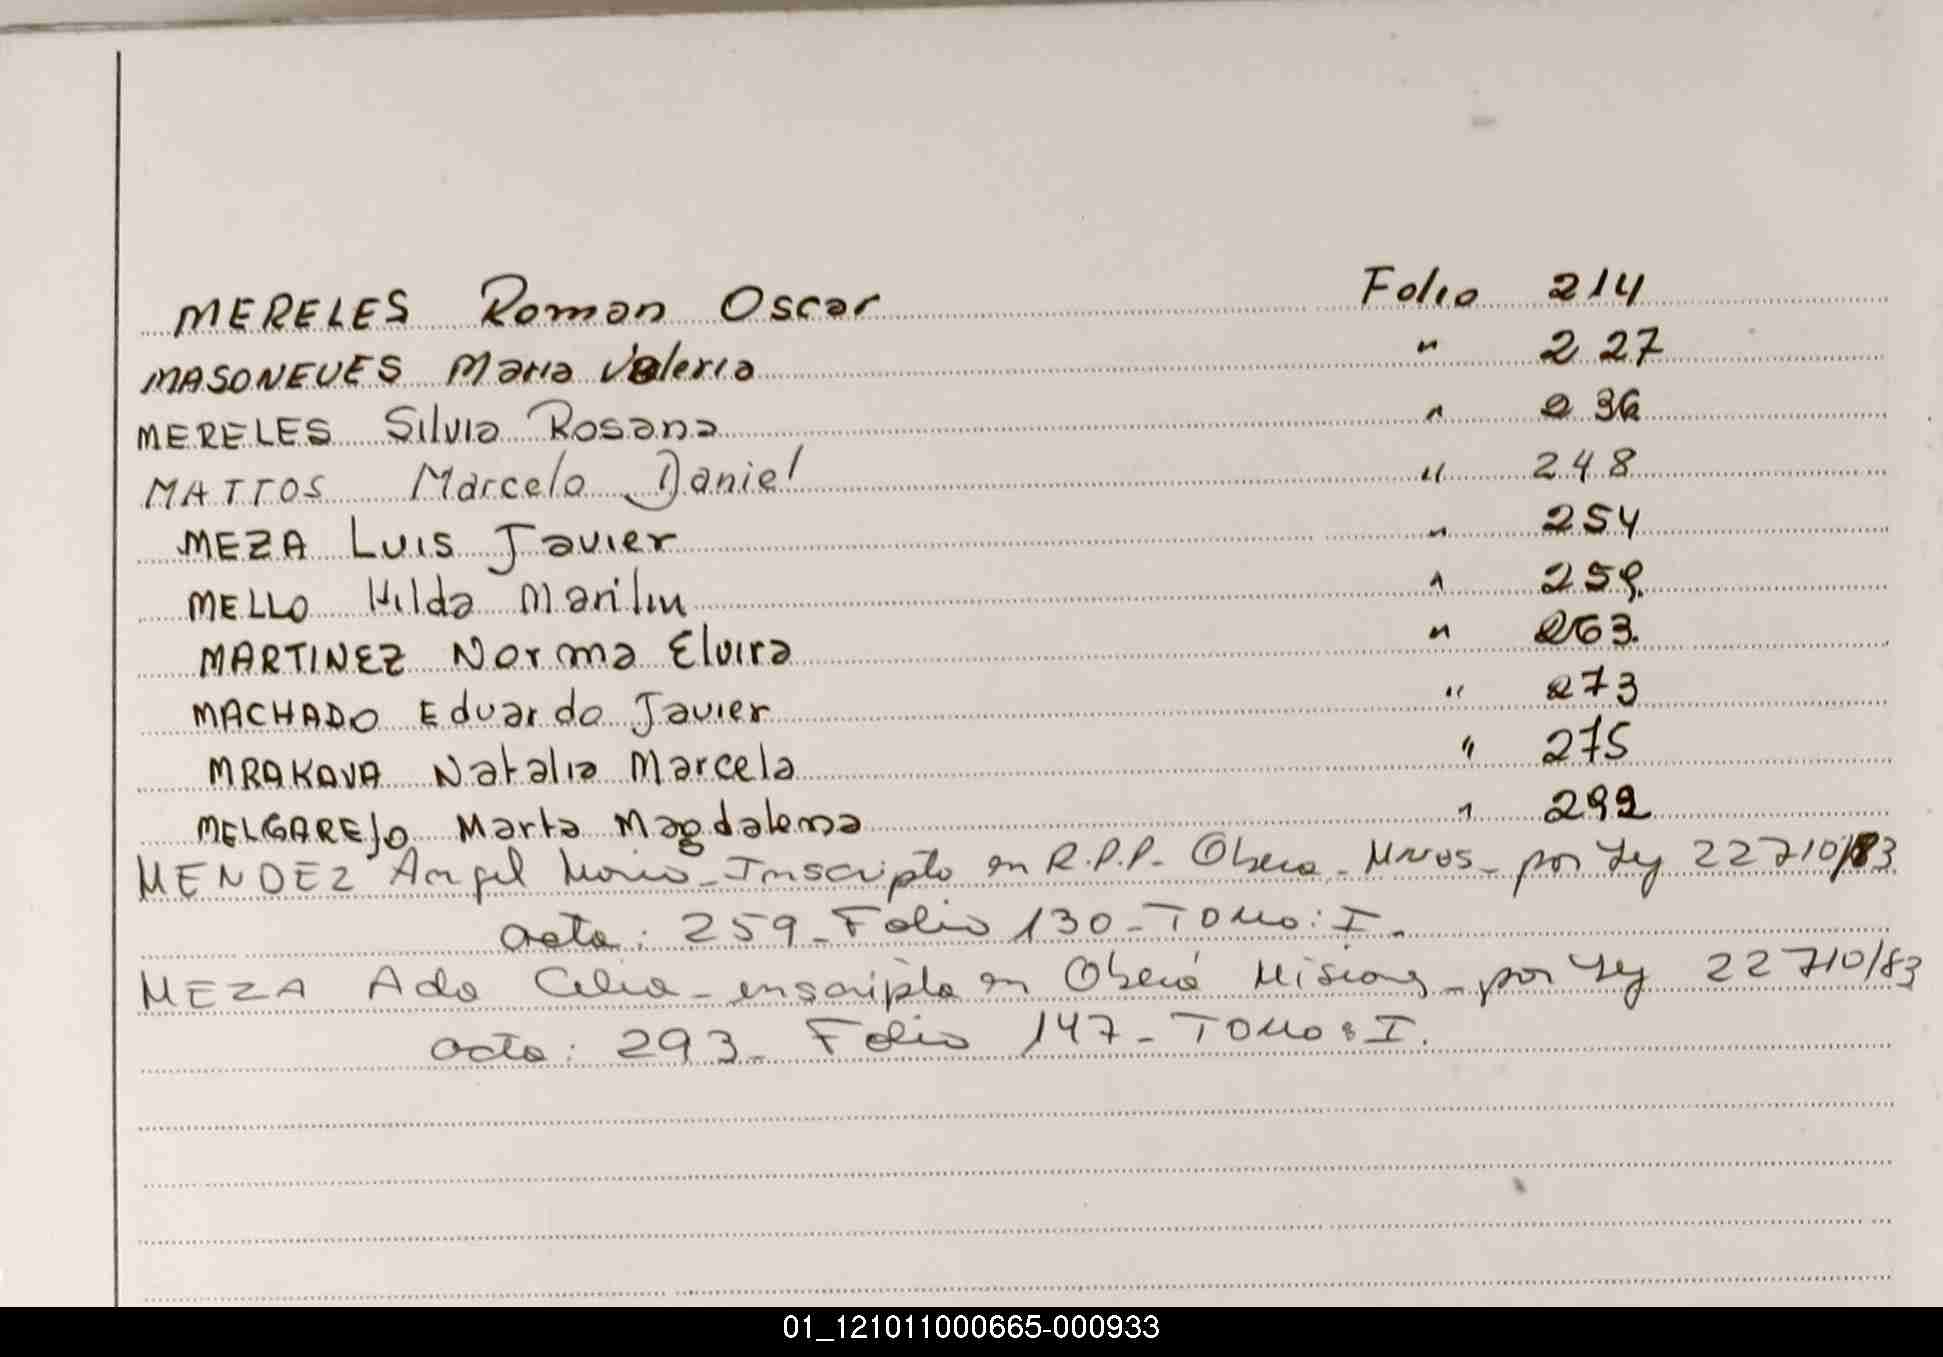 MERELES Roman Oscar Folio 214
MASONEUES Maria Valeria " 227
MERELES Silvia Rosana " 236
MATTOS Marcelo Daniel " 248
MEZA Luis Javier " 254
MELLO Hilda Marilin " 259.
MARTINEZ Norma Elvira " 263.
MACHADO Eduardo Javier " 273
MRAKAVA Natalia Marcela " 275
MELGAREJO Marta Magdalena " 292
MENDEZ Angel Mario - Inscripto en R.P.P. Obera - Mnes - por Ley 22710/83
acta: 259 - Folio 130 - TOMO: I.
MEZA Ada Celia - inscripta en Oberá Misiones - por Ley 22710/83
acta: 293 - Folio 147 - TOMO: I.
01_121011000665-000933